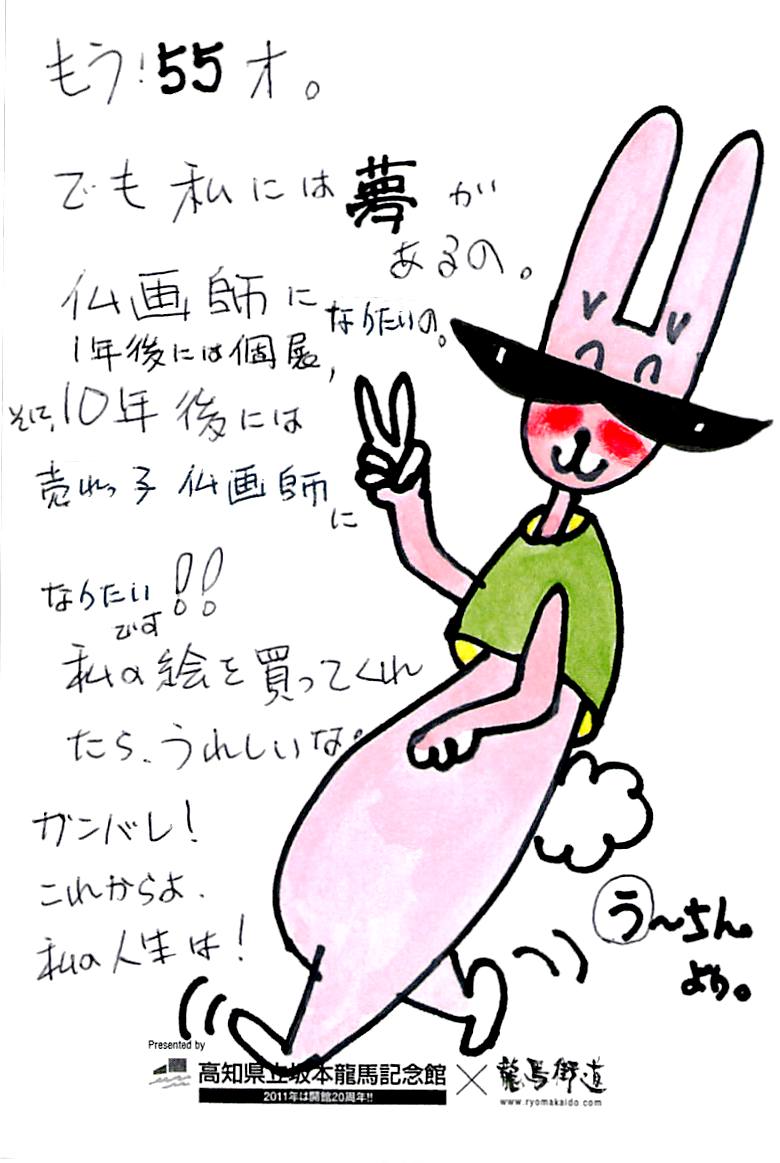 もう!55才。
でも私には夢が
あるの。
仏画師に
なりたいの。
1年後には個展,
そして,10年後には
売れっ子仏画師
に
なりたい!!
です
私の絵を買ってくれ
たら、うれしいな。
ガンバレ!
これからよ、
私の人生は!
う〜ちん。
より。
Presented by
高知県立坂本龍馬記念館
2011年は開館20周年!!
×
龍馬街道
www.ryomakaido.com